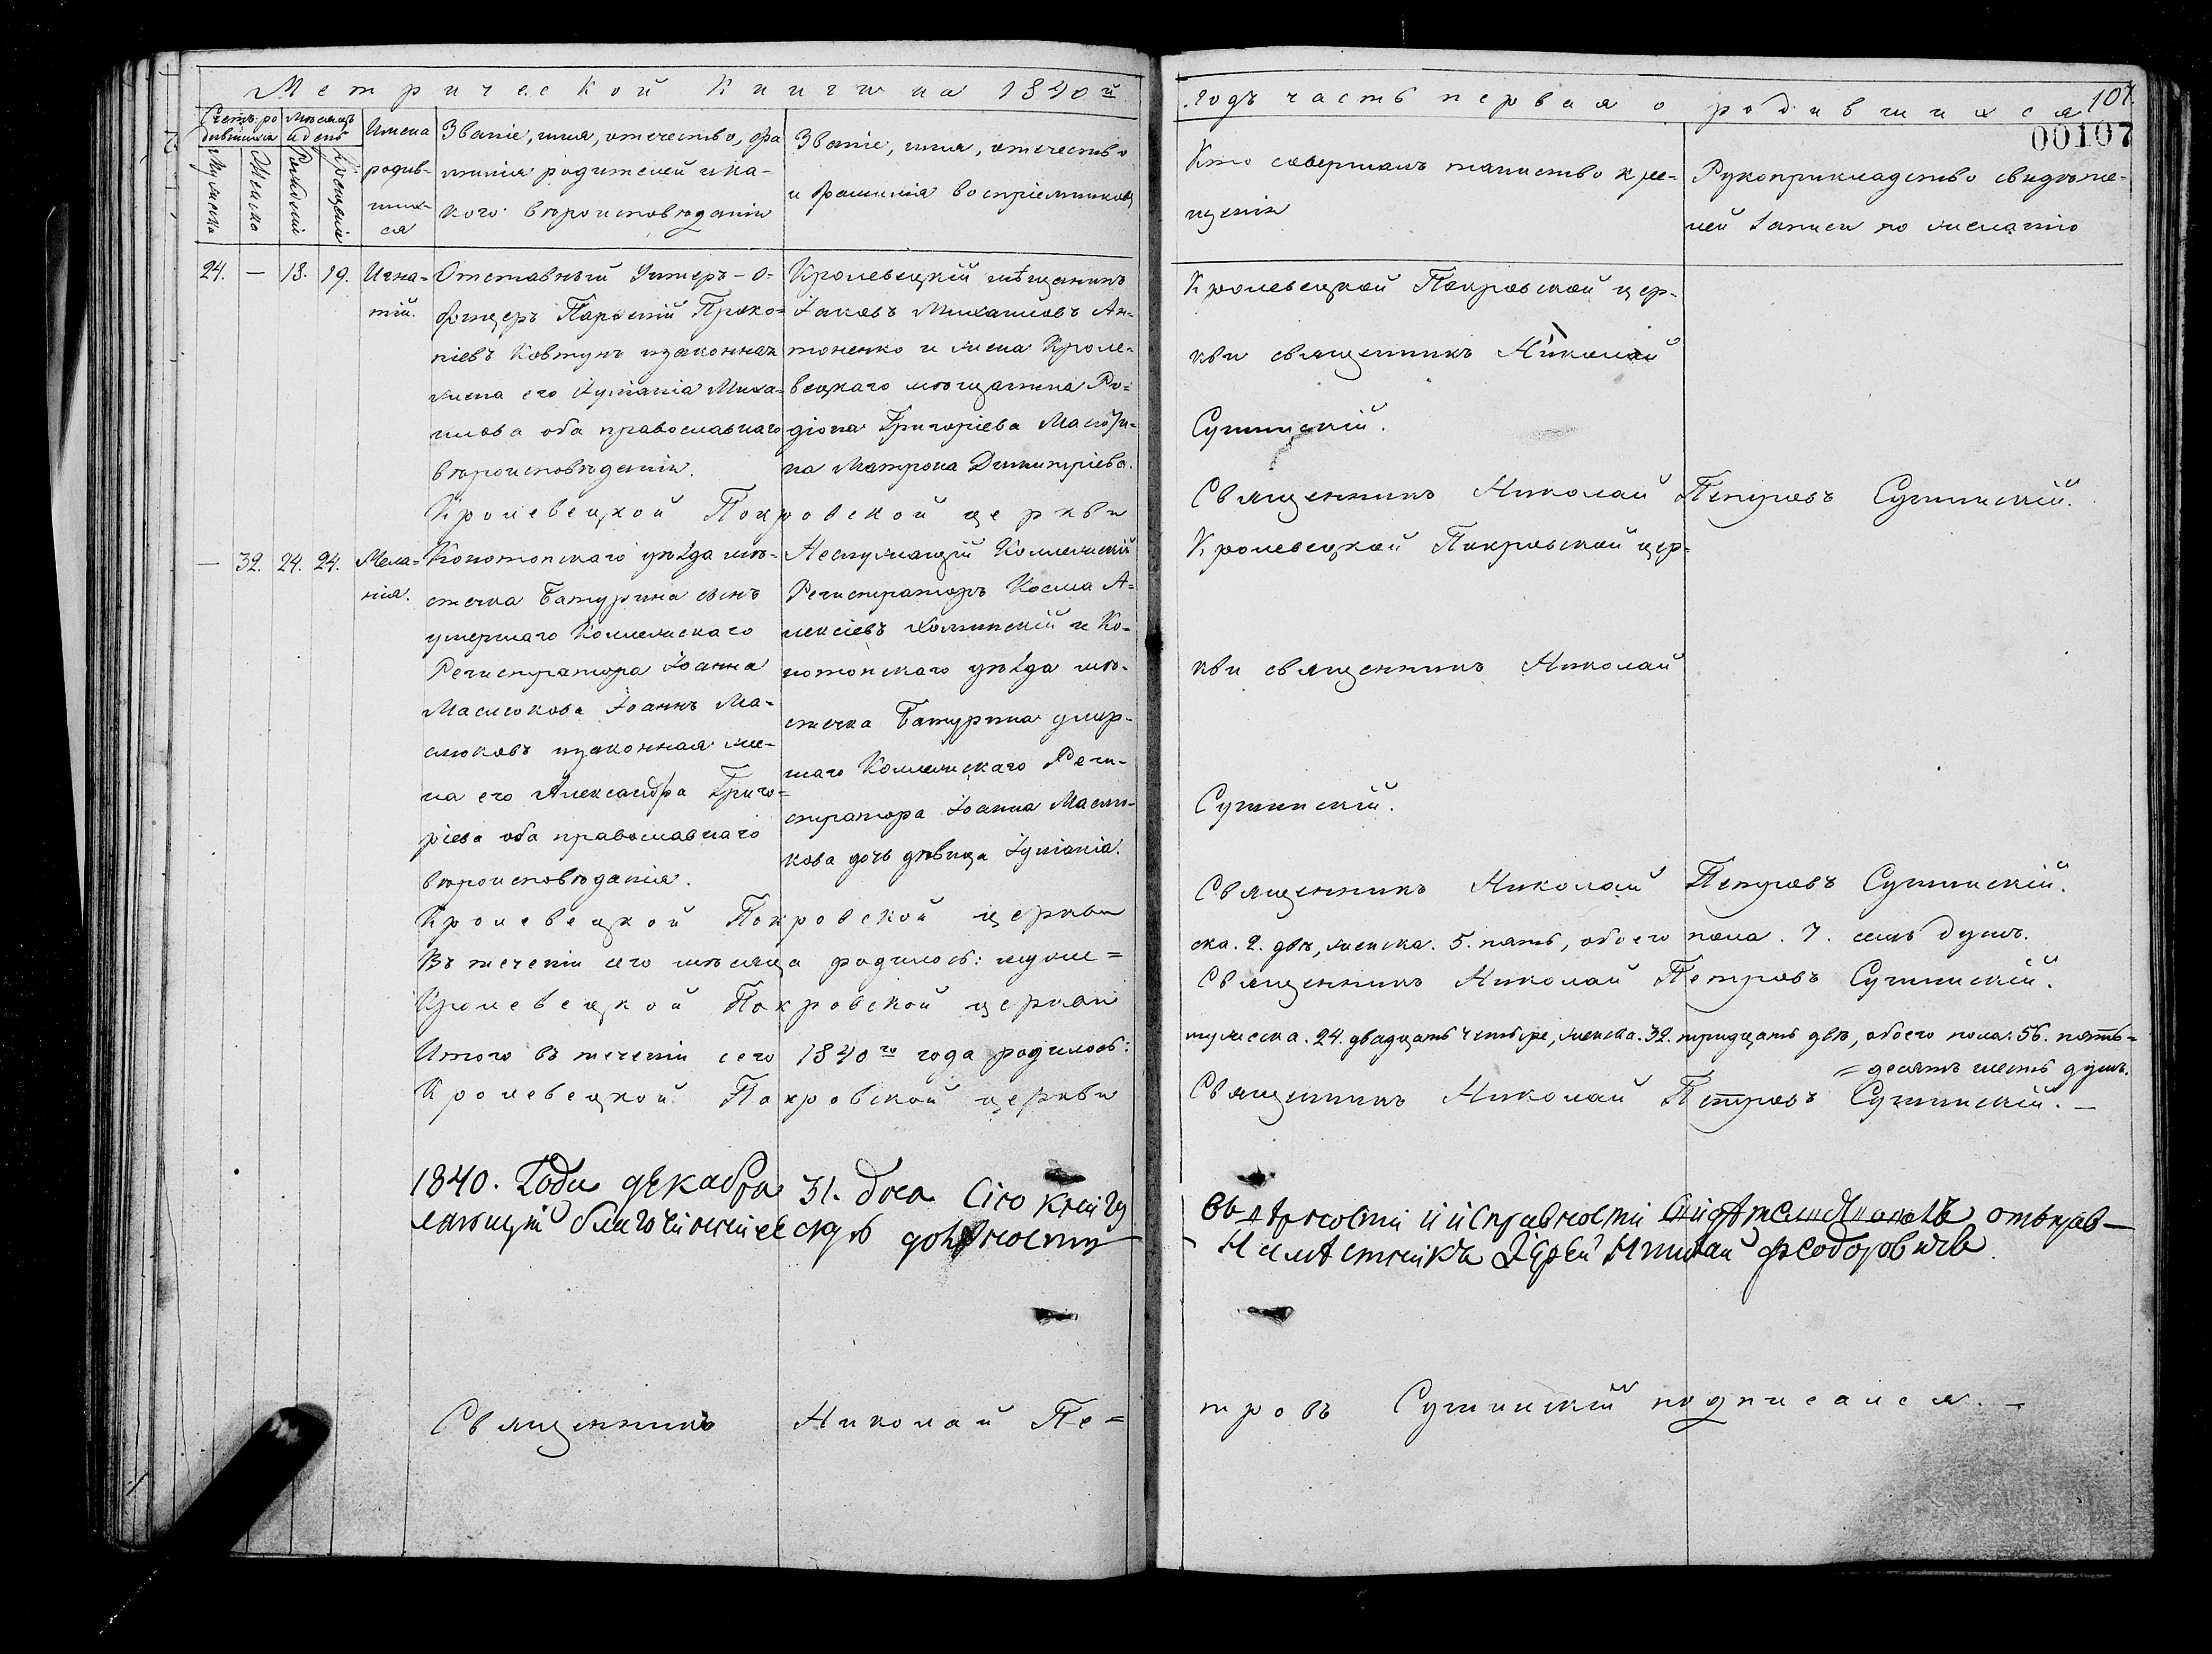 Метрической Книги на 1840й
Годъ часть первая о родившихся
107.
00107
Счетъ ро
дившихся
Мѣсяцъ
и день
Имена
родив-
ших-
ся
Званіе, имя, отечество, фа
милія родителей и ка-
кого вѣроисповѣданія
Званіе, имя, отечество
и фамилія воспріемниковъ
Кто совершалъ таинство кре-
щенія
Рукоприкладство свидѣте-
лей записи по желанію
Мужска
Женско
Рожденія
Крещенія
24. — 18. 19. Игна-
тій.
Отставный Унтеръ-О-
фицеръ Парѳеній Проко-
піевъ Ковтунъ и законная
жена его Іуліанія Миха-
илова оба православнаго
вѣроисповѣданія.
Кролевецкій мѣщанинъ
Іаковъ Михаиловъ Ан-
тоненко и жена Кроле-
вецкаго мѣщанина Ро-
діона Григоріева
на Матрона Димитріева.
Кролевецкой Покровской цер-
кви священникъ Николай
Сушинскій.
Кролевецкой Покровской церкви
Священникъ Николай Петровъ Сушинскій.
— 32. 24. 24. Мела-
нія.
Конотопскаго уѣзда мѣ-
стечка Батурина сынъ
умершаго Коллежскаго
Регистратора Іоанна
Маслюкова Іоаннъ Ма-
слюковъ и законная же-
на его Александра Григо-
ріева оба православнаго
вѣроисповѣданія.
Неслужащій Коллежскій
Регистраторъ Косма А-
лексіевъ Холминскій и Ко-
нотопскаго уѣзда мѣ-
стечка Батурина умер-
шаго Коллежскаго Реги-
стратора Іоанна Маслю-
кова дочь дѣвица Іуліанія.
Кролевецкой Покровской цер-
кви священникъ Николай
Сушинскій.
Кролевецкой Покровской церкви
Священникъ Николай Петровъ Сушинскій.
Въ теченіи сего мѣсяца родилось: муже=
ска. 2. двѣ, женска. 5. пять, обоего пола. 7. семь душъ.
Кролевецкой Покровской церкви
Священникъ Николай Петровъ Сушинскій.
Итого въ теченіи сего 1840го года родилось:
мужеска. 24. двадцать четыре, женска. 32. тридцать двѣ, обоего пола. 56. пять=
=десятъ шесть душъ.
Кролевецкой Покровской церкви
Священникъ Николай Петровъ Сушинскій. —
1840. Года декабря 31. дня Сію книгу
въ вѣрности и исправности отправ—
ляющій благочинническую должность
Іерей Феодоровичъ
Священникъ Николай Пе=
тровъ Сушинскій подписался. —